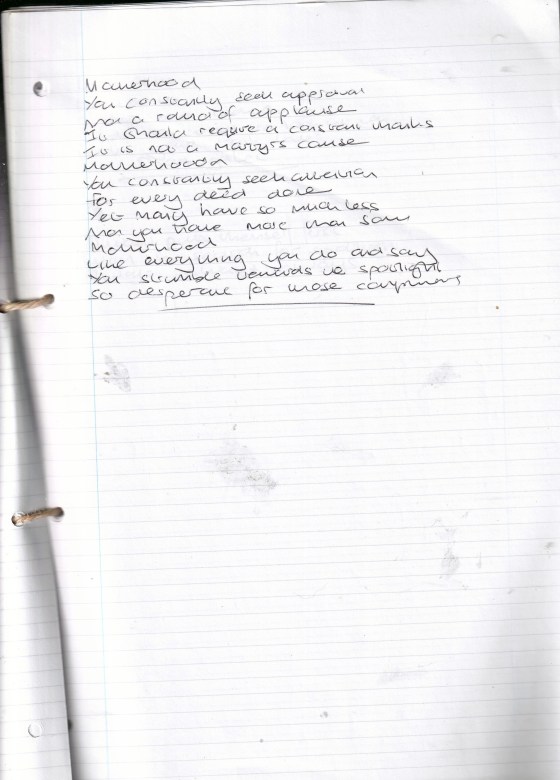 Motherhood
You constantly seek approval
And a round of applause
It should require a constant thanks
It is not a martyrs cause
Motherhood
You constantly seek attention
For every deed done
Yet many have so much less
And you have more than some
Motherhood
Like everything you do and say
You stumble towards the spotlight
So desperate for those compliments